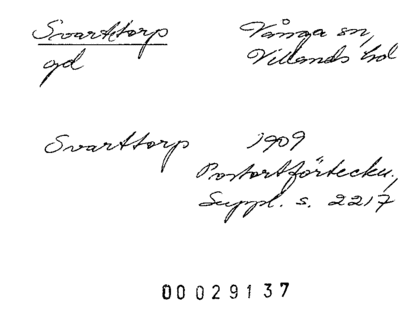 Svarttorp Vånga sn,
gd Villands hd
Svarttorp 1909
Postortförteckn.,
Suppl. s. 2217
00029137